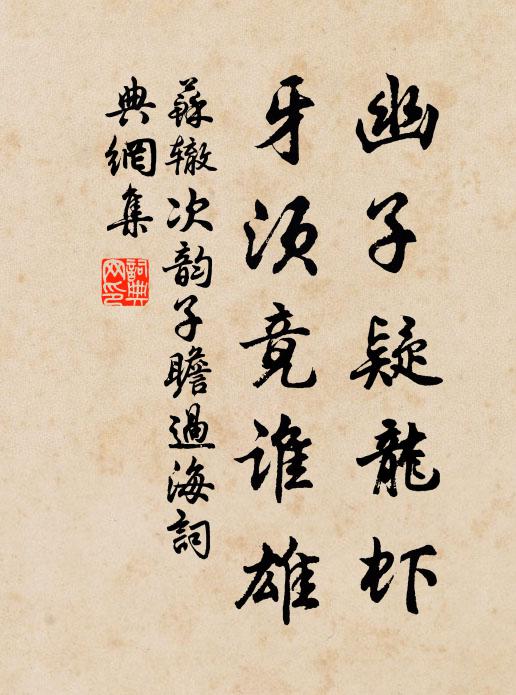 幽子疑龍虾
牙须竟谁雄
蘇辙次韵子瞻過海詞
典網集
詞典網印